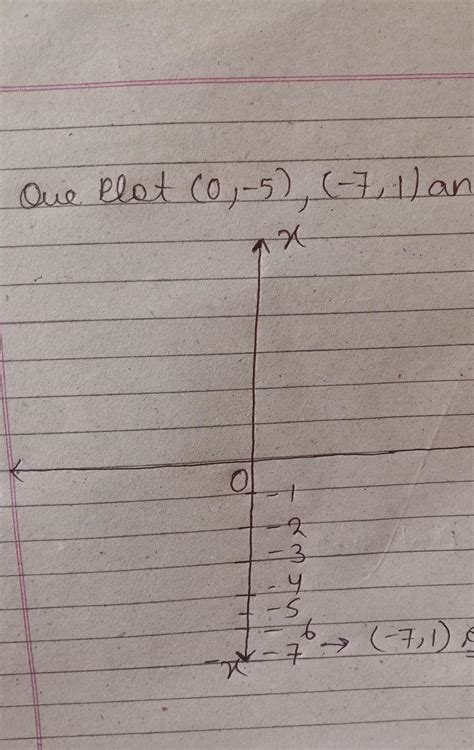 Que Plot (0,-5), (-7,1) an
x
0
-1
-2
-3
-4
-5
-6
-7 → (-7,1)
-x